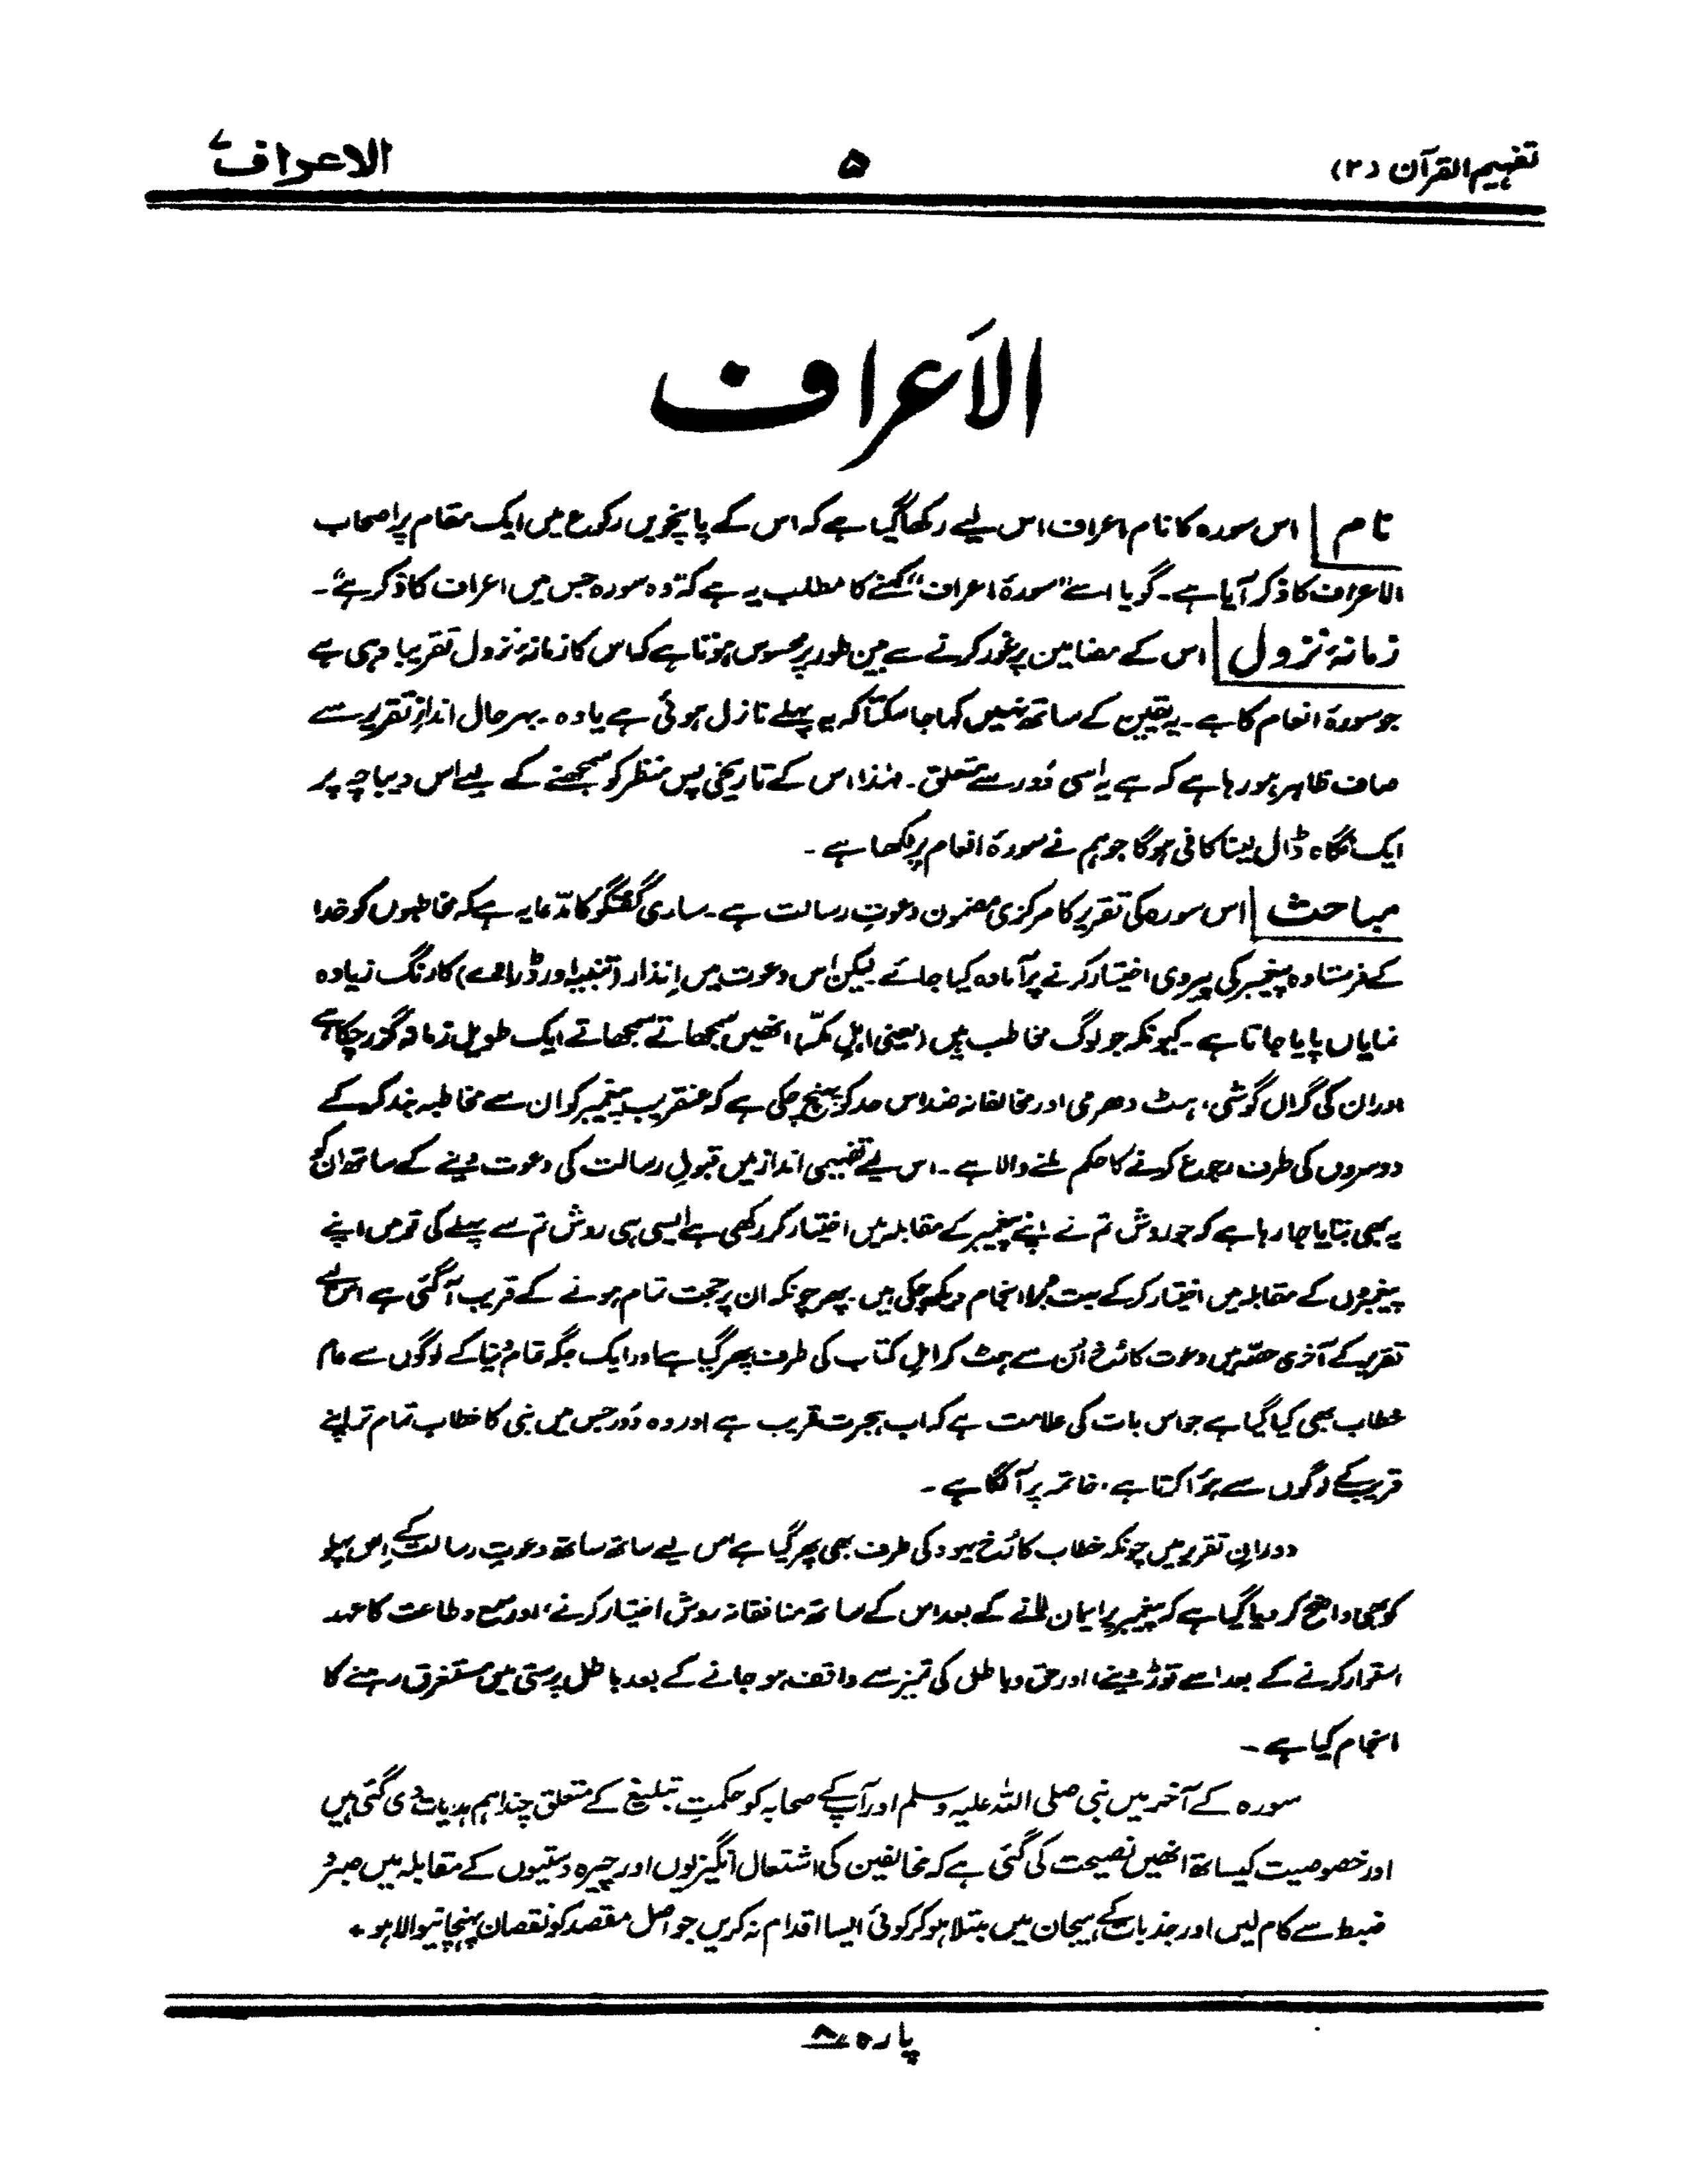 تفہیم القرآن (۲)
۵
الاعراف ۷
الاَعراف
نام اس سورہ کا نام اعراف اس لیے رکھا گیا ہے کہ اس کے پانچویں رکوع میں ایک مقام پر اصحاب
الاعراف کا ذکر آیا ہے۔ گویا اسے ”سورۂ اعراف“ کہنے کا مطلب یہ ہے کہ ”وہ سورہ جس میں اعراف کا ذکر ہے“۔
زمانۂ نزول اس کے مضامین پر غور کرنے سے بین طور پر محسوس ہوتا ہے کہ اس کا زمانۂ نزول تقریباً وہی ہے
جو سورۂ انعام کا ہے۔ یہ یقین کے ساتھ نہیں کہا جا سکتا کہ یہ پہلے نازل ہوئی ہے یا وہ۔ بہرحال اندازِ تقریر سے
صاف ظاہر ہو رہا ہے کہ ہے یہ اسی دَور سے متعلق۔ لہٰذا اس کے تاریخی پس منظر کو سمجھنے کے لیے اس دیباچہ پر
ایک نگاہ ڈال لینا کافی ہوگا جو ہم نے سورۂ انعام پر لکھا ہے۔
مباحث اس سورہ کی تقریر کا مرکزی مضمون دعوتِ رسالت ہے۔ ساری گفتگو کا مدّعا یہ ہے کہ مخاطبوں کو خدا
کے فرستادہ پیغمبر کی پیروی اختیار کرنے پر آمادہ کیا جائے۔ لیکن اس دعوت میں اِنذار (تنبیہ اور ڈراوے) کا رنگ زیادہ
نمایاں پایا جاتا ہے۔ کیونکہ جو لوگ مخاطب ہیں (یعنی اہلِ مکّہ) انھیں سمجھاتے سمجھاتے ایک طویل زمانہ گزر چکا ہے
اور ان کی گراں گوشی، ہٹ دھرمی اور مخالفانہ ضد اس حد کو پہنچ چکی ہے کہ عنقریب پیغمبر کو ان سے مخاطبہ بند کر کے
دوسروں کی طرف رجوع کرنے کا حکم ملنے والا ہے۔ اس لیے تفہیمی انداز میں قبولِ رسالت کی دعوت دینے کے ساتھ ان کو
یہ بھی بتایا جا رہا ہے کہ جو روش تم نے اپنے پیغمبر کے مقابلہ میں اختیار کر رکھی ہے ایسی ہی روش تم سے پہلے کی قومیں اپنے
پیغمبروں کے مقابلہ میں اختیار کر کے بہت برا انجام دیکھ چکی ہیں۔ پھر چونکہ ان پر حجت تمام ہونے کے قریب آ گئی ہے اس لیے
تقریر کے آخری حصّہ میں دعوت کا رُخ اُن سے ہٹ کر اہلِ کتاب کی طرف پھر گیا ہے اور ایک جگہ تمام دُنیا کے لوگوں سے عام
خطاب بھی کیا گیا ہے جو اس بات کی علامت ہے کہ اب ہجرت قریب ہے اور وہ دَور جس میں نبی کا خطاب تمام تر اپنے
قریب کے لوگوں سے ہؤا کرتا ہے، خاتمہ پر آ لگا ہے۔
دورانِ تقریر میں چونکہ خطاب کا رُخ یہود کی طرف بھی پھر گیا ہے اس لیے ساتھ ساتھ دعوتِ رسالت کے اِس پہلو
کو بھی واضح کر دیا گیا ہے کہ پیغمبر پر ایمان لانے کے بعد اس کے ساتھ منافقانہ روش اختیار کرنے، اور سمع و طاعت کا عہد
استوار کرنے کے بعد اسے توڑ دینے، اور حق و باطل کی تمیز سے واقف ہو جانے کے بعد باطل پرستی میں مستغرق رہنے کا
انجام کیا ہے۔
سورہ کے آخر میں نبی صلی اللہ علیہ وسلم اور آپ کے صحابہ کو حکمتِ تبلیغ کے متعلق چند اہم ہدایات دی گئی ہیں
اور خصوصیت کیساتھ انھیں نصیحت کی گئی ہے کہ مخالفین کی اشتعال انگیزیوں اور چیرہ دستیوں کے مقابلہ میں صبر و
ضبط سے کام لیں اور جذبات کے ہیجان میں مبتلا ہو کر کوئی ایسا اقدام نہ کریں جو اصل مقصد کو نقصان پہنچانیوالا ہو۔
پارہ ۸